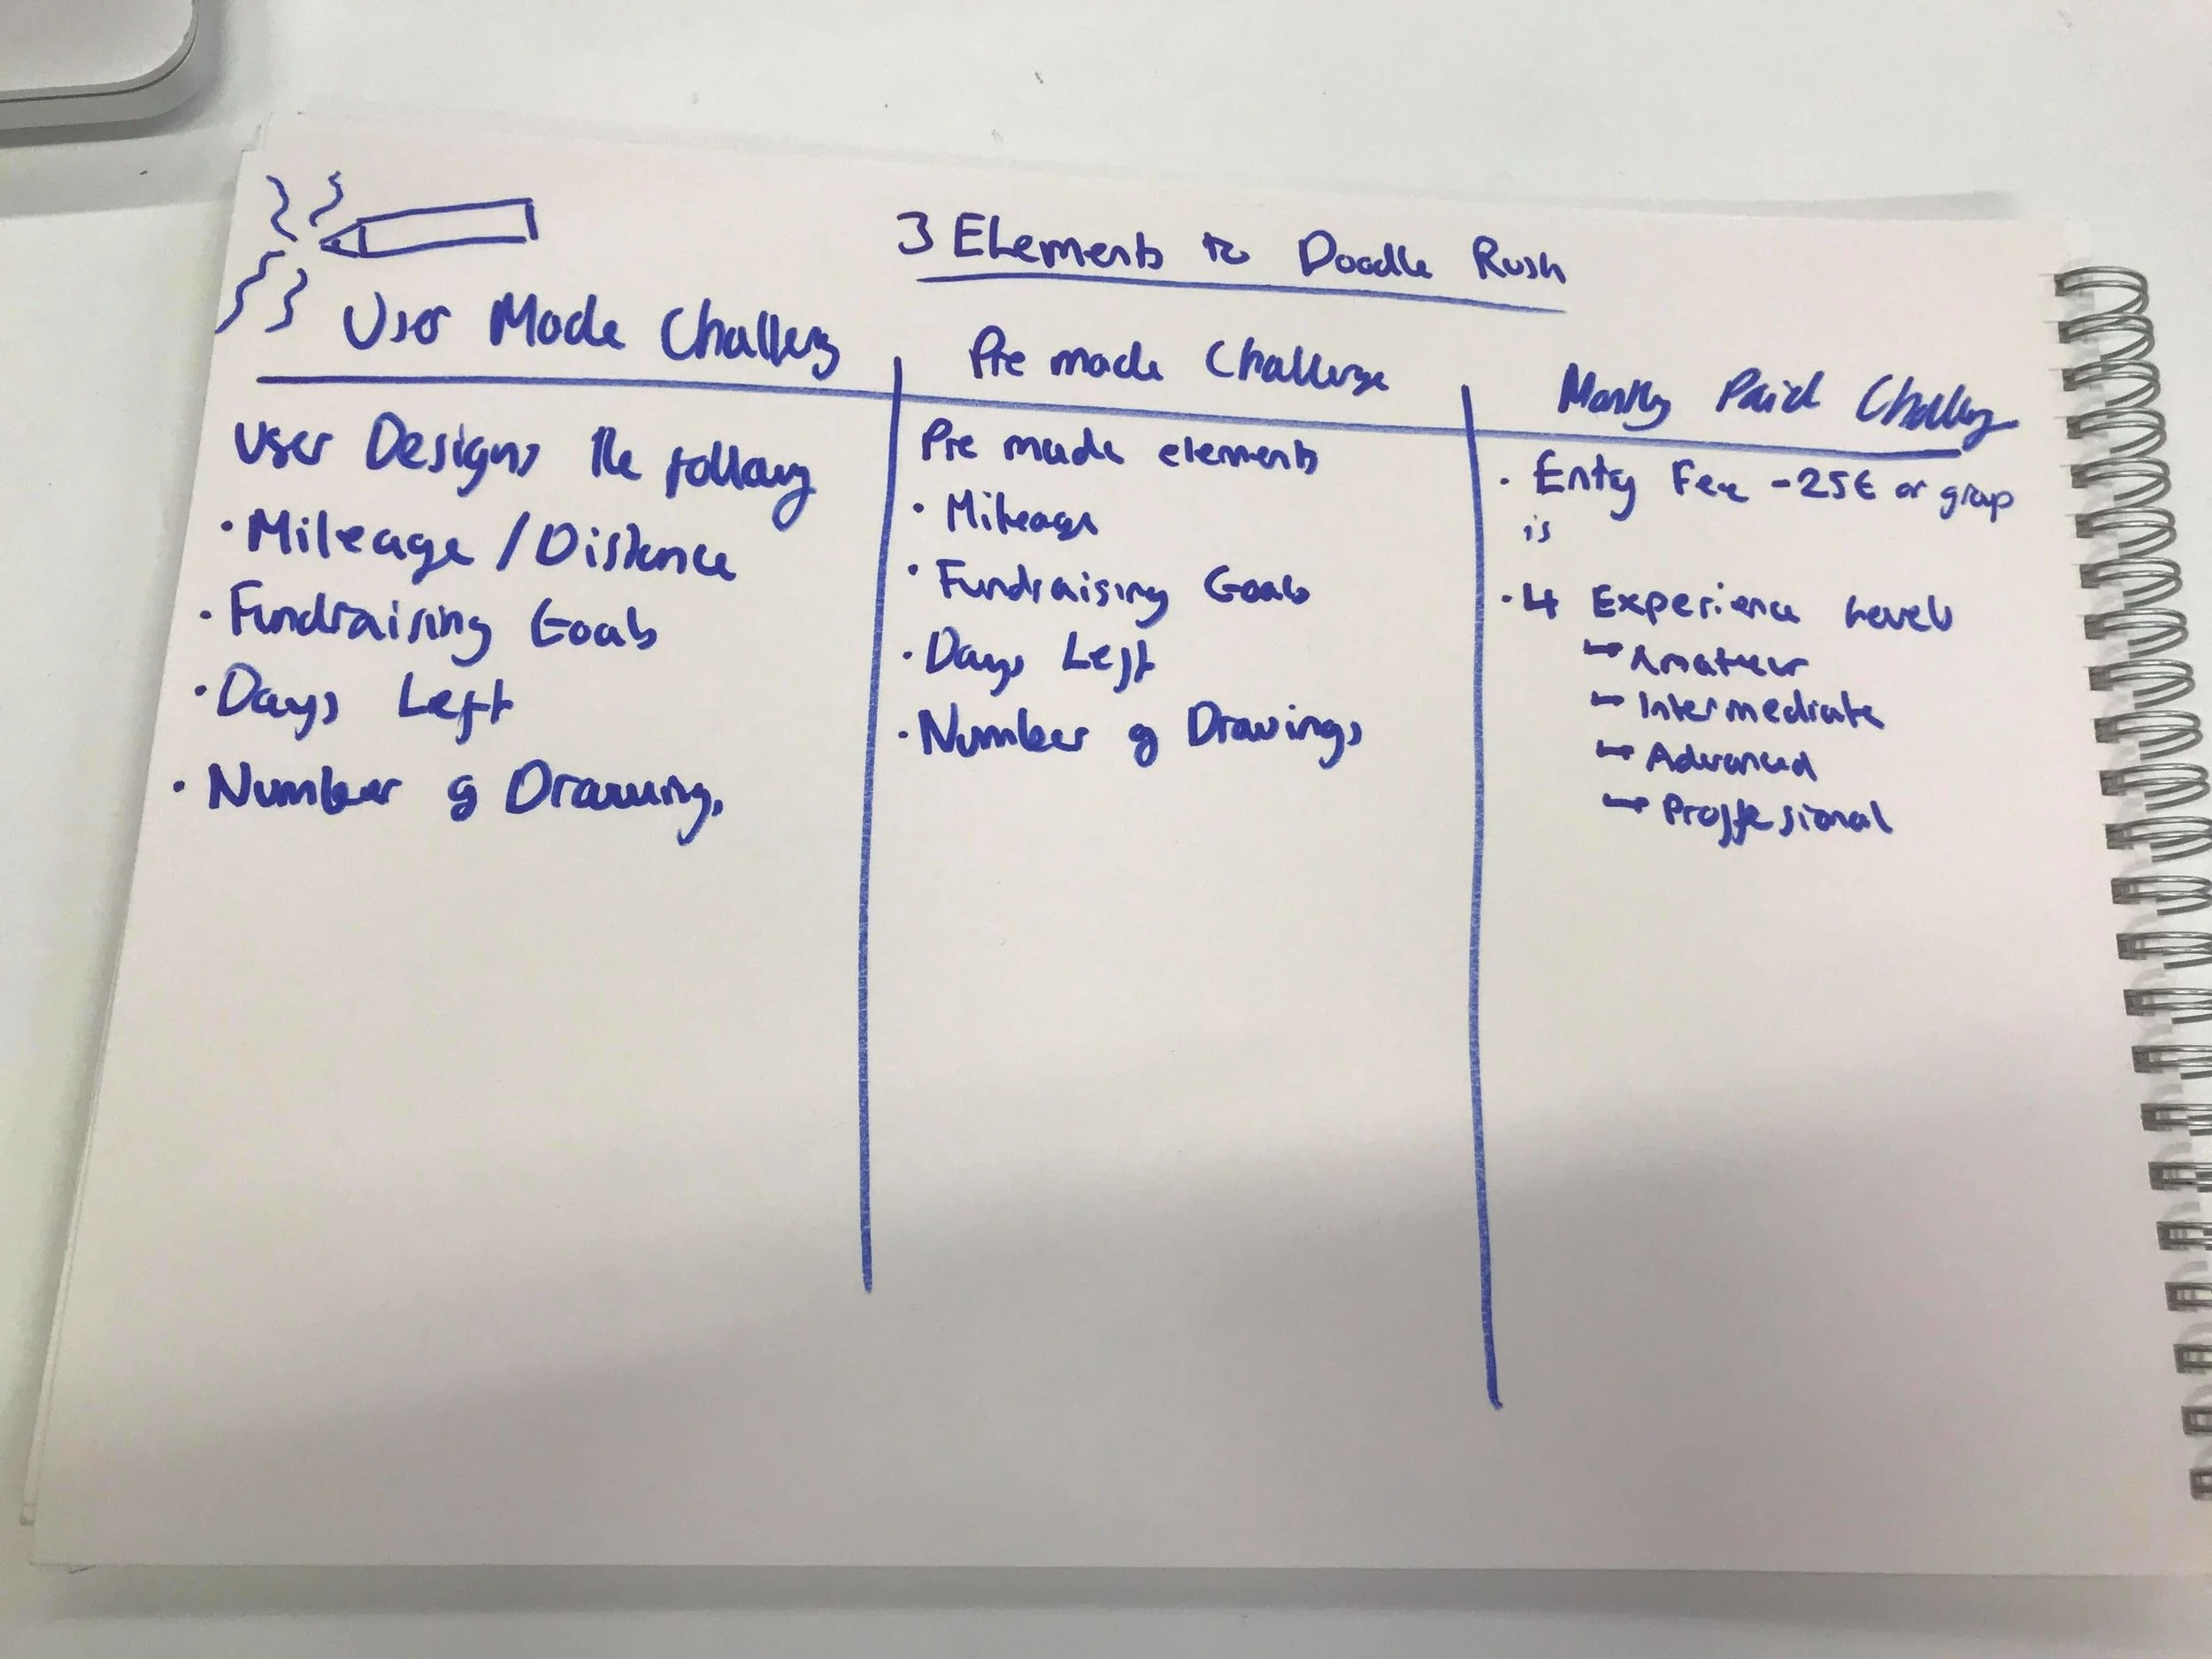 3 Elements to Doodle Rush
User Made Challenge
User Designs the following
• Mileage / Distance
• Fundraising Goals
• Days Left
• Number of Drawings
Pre made Challenge
Pre made elements
• Mileage
• Fundraising Goals
• Days Left
• Number of Drawings
Monthly Paid Challenge
• Entry Fee - 25€ or group
is
• 4 Experience Levels
↳ Amateur
↳ Intermediate
↳ Advanced
↳ Proffesional